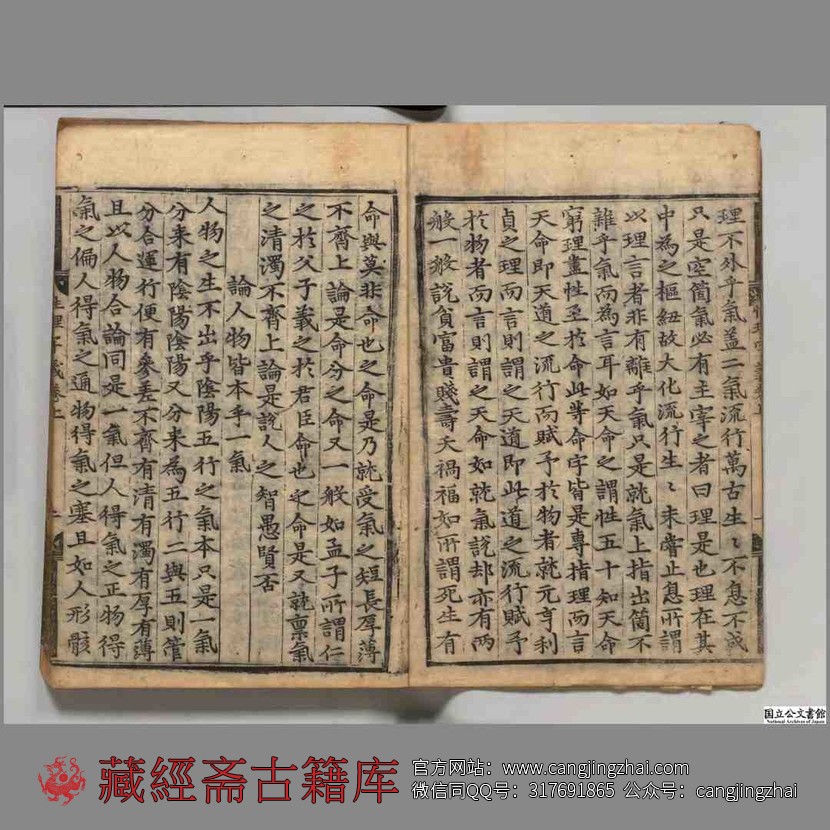 理不外乎氣蓋二氣流行萬古生〻不息不成
只是空箇氣必有主宰之者曰理是也理在其
中為之樞紐故大化流行生〻未嘗止息所謂
以理言者非有離乎氣只是就氣上指出箇不
雜乎氣而為言耳如天命之謂性五十知天命
窮理盡性至於命此等命字皆是專指理而言
天命即天道之流行而賦予於物者就元亨利
貞之理而言則謂之天道即此道之流行賦予
於物者而言則謂之天命如就氣說却亦有兩
般一般說貧富貴賤壽夭禍福如所謂死生有
命與莫非命也之命是乃就受氣之短長厚薄
不齊上論是命分之命又一般如孟子所謂仁
之於父子義之於君臣命也之命是又就禀氣
之清濁不齊上論是說人之智愚賢否
論人物皆本乎一氣
人物之生不出乎陰陽五行之氣本只是一氣
分来有陰陽陰陽又分来為五行二與五則管
分合運行便有參差不齊有清有濁有厚有薄
且以人物合論同是一氣但人得氣之正物得
氣之偏人得氣之通物得氣之塞且如人形骸
国立公文書館
National Archives of Japan
藏經斋古籍库
官方网站：www.cangjingzhai.com
微信同QQ号：317691865 公众号：cangjingzhai